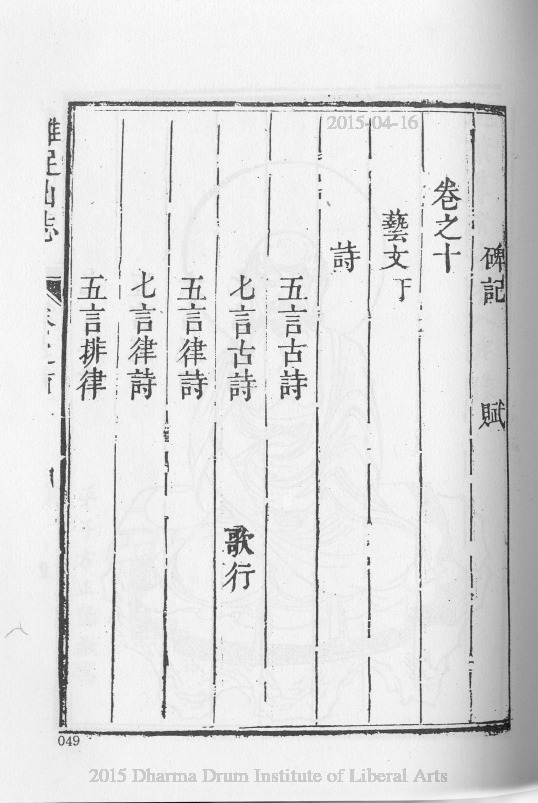 2015-04-16
碑記 賦
卷之十
藝文下
詩
五言古詩
七言古詩 歌行
五言律詩
七言律詩
五言排律
雞足山志
049
2015 Dharma Drum Institute of Liberal Arts